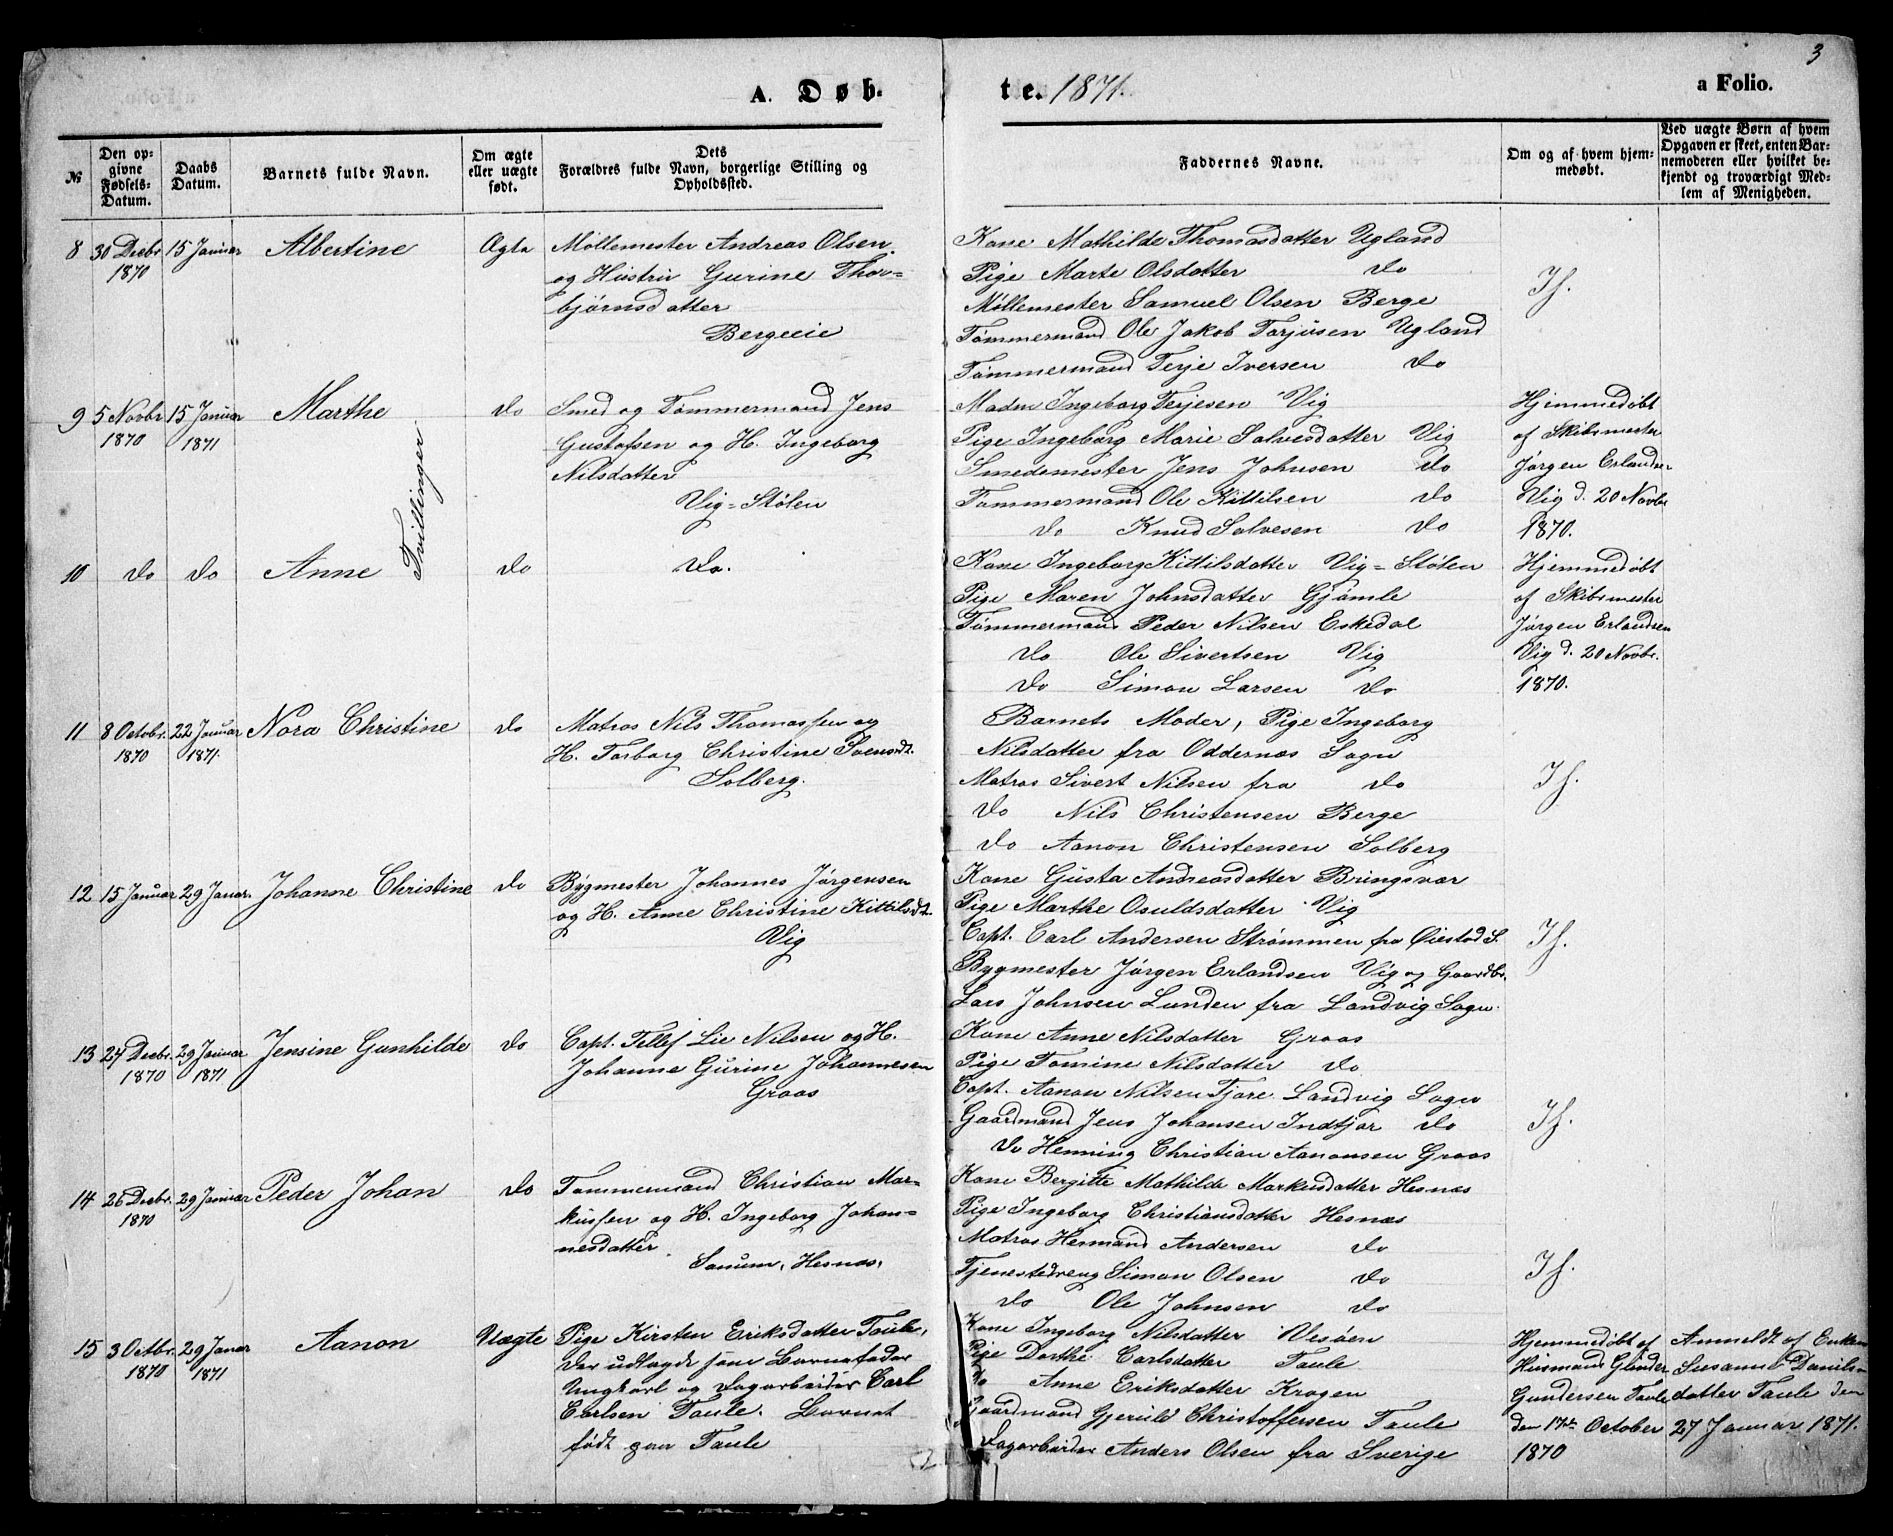 3
A. Døb- te. 1871. a Folio.
№
Den op-
givne
Fødsels-
Datum.
Daabs
Datum.
Barnets fulde Navn.
Om ægte
eller uægte
født.
Dets
Forældres fulde Navn, borgerlige Stilling og
Opholdssted.
Faddernes Navne.
Om og af hvem hjem-
medøbt.
Ved uægte Børn af hvem
Opgaven er skeet, enten Bar-
nemoderen eller hvilket be-
kjendt og troværdigt Med-
lem af Menigheden.
8 30 Decbr. 1870 15 Januar Albertine Ægte
Møllemester Andreas Olsen
og Hustru Gurine Thor-
bjørnsdatter
Bergeeie
Kone Mathilde Thomasdatter Ugland
Pige Marte Olsdatter do
Møllemester Samuel Olsen Berge
Tømmermand Ole Jakob Tarjusen Ugland
Tømmermand Terje Iversen do
If.
9 5 Novbr 1870 15 Januar 1871 Marthe do
Tvillinger
Smed og Tømmermand Jens
Gustafsen og H. Ingeborg
Nilsdatter
Vig=Stølen
Madm Ingeborg Terjesen Vig
Pige Ingeborg Marie Salvesdatter Vig
Smedemester Jens Johnsen do
Tømmermand Ole Kittilsen do
do Knud Salvesen do
Hjemmedøbt
af Skibsmester
Jørgen Erlandsen
Vig d. 20 Novbr
1870.
10 do do Anne do do.
Kone Ingeborg Kittilsdatter Vig=Stølen
Pige Maren Johnsdatter Gjømle
Tømmermand Peder Nilsen Eskedal
do Ole Sivertsen Vig
do Simon Larsen do
Hjemmedøbt
af Skibsmester
Jørgen Erlandsen
Vig d. 20 Novbr.
1870.
11 8 Octobr. 1870 22 Januar 1871. Nora Christine do
Matros Nils Thomassen og
H. Torborg Christine Svensdt.
Solberg.
Barnets Moder, Pige Ingeborg
Nilsdatter fra Oddernæs Sogn
Matros Sivert Nilsen fra do
do Nils Christensen Berge
do Aanon Christensen Solberg
If.
12 15 Januar 29 Januar. Johanne Christine do
Bygmester Johannes Jørgensen
og H. Anne Christine Kittilsdt.
Vig
Kone Gusta Andreasdatter Bringsvær
Pige Marthe Osuldsdatter Vig
Capt. Carl Andersen Strømmen fra Øiestad S.
Bygmester Jørgen Erlandsen Vig og Gaardbr.
Lars Johnsen Lunden fra Landvig Sogn.
If.
13 24 Decbr. 1870 29 Januar 1871 Jensine Gunhilde do
Capt. Tellef Lie Nilsen og H.
Johanne Gurine Johannesen
Groos
Kone Anne Nilsdatter Groos
Pige Tomine Nilsdatter do
Capt. Aanon Nilsen Tjore. Landvig Sogn
Gaardmand Jens Johansen Indtjør do
do Henning Christian Aanonsen Groos
If.
14 26 Decbr. 1870 29 Januar Peder Johan do
Tømmermand Christian Mar-
kussen og H. Ingeborg Johan-
nesdatter.
Sanum, Hesnæs.
Kone Bergitte Mathilde Markusdatter Hesnæs
Pige Ingeborg Christiansdatter Hesnæs
Matros Hermand Andersen do
Tjenestedreng Simon Olsen do
do Ole Johnsen do
If.
15 3 Octbr. 1870 29 Januar 1871 Aanon Uægte
Pige Kirsten Eriksdatter Taule,
der udlagde som Barnefader
Ungkarl og Dagarbeider Carl
Carlsen Taule. Barnet
født paa Taule
Kone Ingeborg Nilsdatter Vesøen
Pige Dorthe Carlsdatter Taule
do Anne Eriksdatter Krogen
Gaardmand Gjeruld Christoffersen Taule
Dagarbeider Anders Olsen fra Sverige
Hjemmedøbt af
Husmand Gunder
Gundersen Taule
den 17de October
1870
Anmeldt af Enken
Susanne Daniels-
datter Taule den
27 Januar 1871.